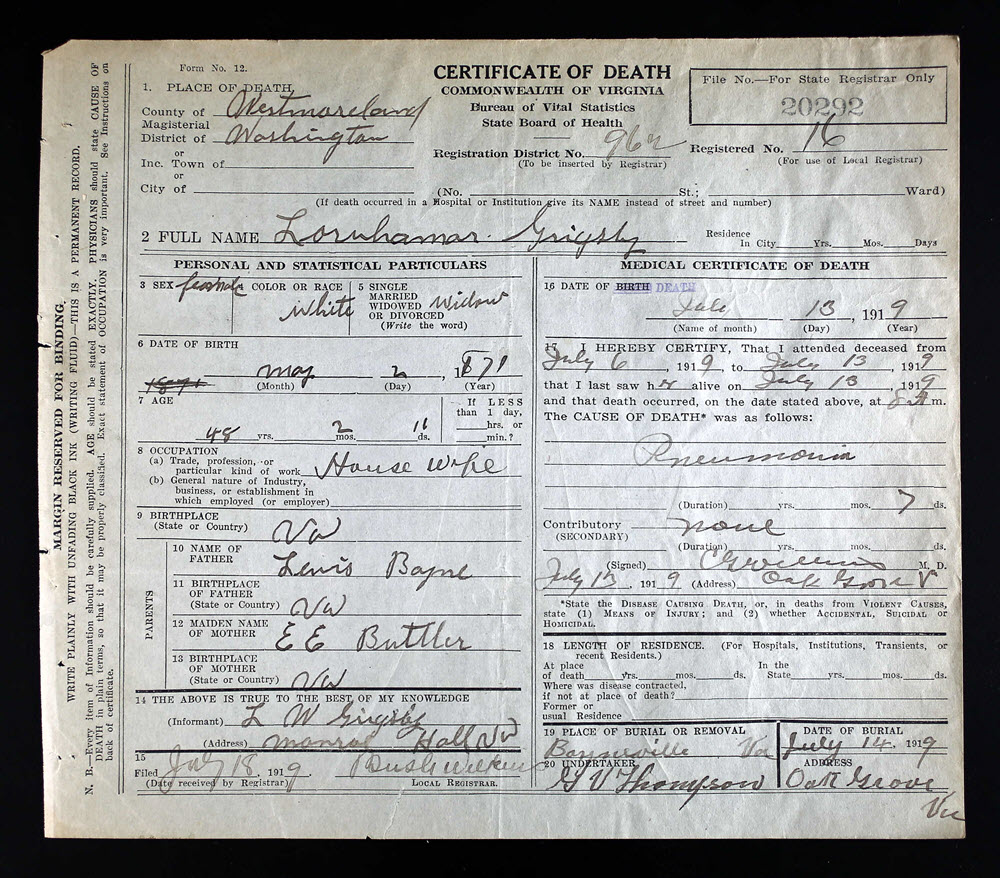 Form No. 12.
1. PLACE OF DEATH
County of Westmoreland
Magisterial
District of Washington
or
Inc. Town of
or
City of
CERTIFICATE OF DEATH
COMMONWEALTH OF VIRGINIA
Bureau of Vital Statistics
State Board of Health
Registration District No. 962
(To be inserted by Registrar)
File No.—For State Registrar Only
20292
Registered No. 16
(For use of Local Registrar)
(No. St.; Ward)
(If death occurred in a Hospital or Institution give its NAME instead of street and number)
2 FULL NAME Lornhamar Grigsby
Residence
In City Yrs. Mos. Days
PERSONAL AND STATISTICAL PARTICULARS
3 SEX female
COLOR OR RACE
White
5 SINGLE
MARRIED
WIDOWED
OR DIVORCED
(Write the word)
Widow
6 DATE OF BIRTH
1871 May 2, 1871
(Month) (Day) (Year)
7 AGE
48 yrs. 2 mos. 11 ds.
If LESS
than 1 day,
hrs. or
min.?
8 OCCUPATION
(a) Trade, profession, or
particular kind of work House Wife
(b) General nature of Industry,
business, or establishment in
which employed (or employer)
9 BIRTHPLACE
(State or Country) Va
PARENTS
10 NAME OF
FATHER Lewis Bayne
11 BIRTHPLACE
OF FATHER
(State or Country) Va
12 MAIDEN NAME
OF MOTHER E E Buttler
13 BIRTHPLACE
OF MOTHER
(State or Country) Va
14 THE ABOVE IS TRUE TO THE BEST OF MY KNOWLEDGE
(Informant) L W Grigsby
(Address) Monroe Hall Va
15
Filed July 18, 1919
(Date received by Registrar) LOCAL REGISTRAR.
MEDICAL CERTIFICATE OF DEATH
16 DATE OF BIRTH DEATH
July 13, 1919
(Name of month) (Day) (Year)
17 I HEREBY CERTIFY, That I attended deceased from
July 6, 1919, to July 13, 1919
that I last saw her alive on July 13, 1919
and that death occurred, on the date stated above, at 8 A m.
The CAUSE OF DEATH* was as follows:
Pneumonia
(Duration) yrs. mos. 7 ds.
Contributory none
(SECONDARY)
(Duration) yrs. mos. ds.
(Signed) M. D.
July 13, 1919 (Address) Oak Grove V
*State the DISEASE CAUSING DEATH, or, in deaths from VIOLENT CAUSES,
state (1) MEANS OF INJURY; and (2) whether ACCIDENTAL, SUICIDAL or
HOMICIDAL.
18 LENGTH OF RESIDENCE. (For Hospitals, Institutions, Transients, or
recent Residents.)
At place In the
of death yrs. mos. ds. State yrs. mos. ds.
Where was disease contracted,
if not at place of death?
Former or
usual Residence
19 PLACE OF BURIAL OR REMOVAL
Bayneville Va
DATE OF BURIAL
July 14, 1919
20 UNDERTAKER
G V Thompson
ADDRESS
Oak Grove
Va
MARGIN RESERVED FOR BINDING.
WRITE PLAINLY WITH UNFADING BLACK INK (WRITING FLUID)—THIS IS A PERMANENT RECORD.
N. B.—Every item of Information should be carefully supplied. AGE should be stated EXACTLY. PHYSICIANS should state CAUSE OF
DEATH in plain terms, so that it may be properly classified. Exact statement of OCCUPATION is very important. See Instructions on
back of certificate.